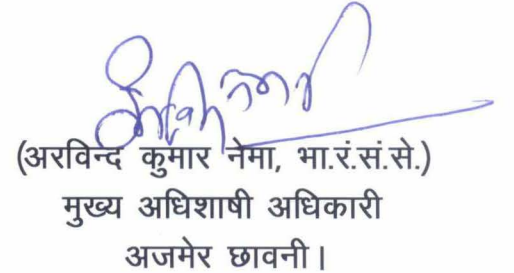 (अरविन्द कुमार नेमा, भा.रं.सं.से.)
मुख्य अधिशाषी अधिकारी
अजमेर छावनी।